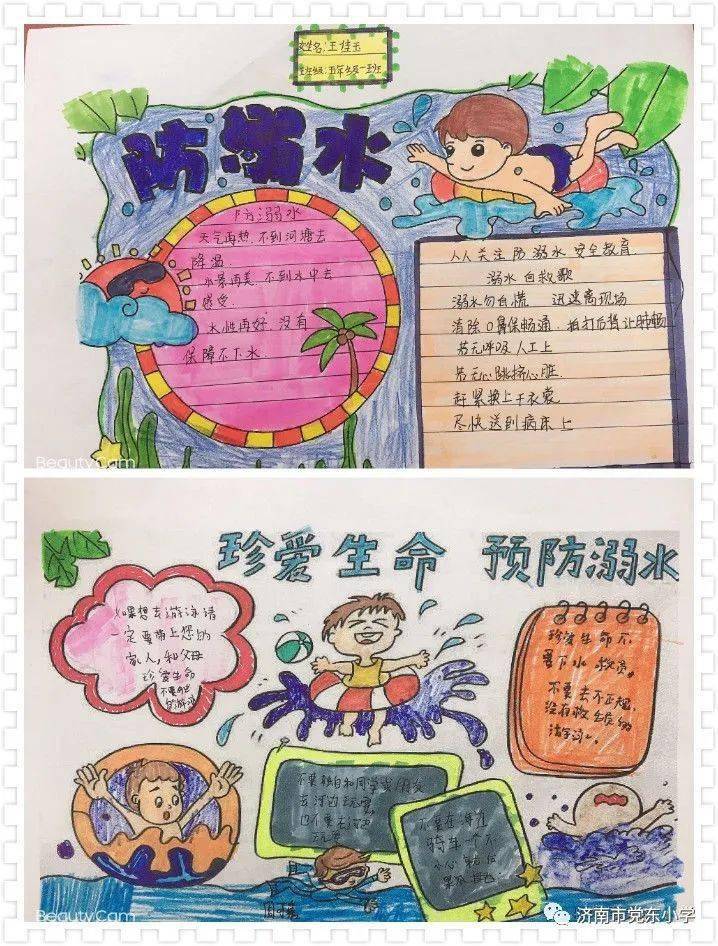 姓名:王佳玉
班级:五年级一班
防溺水
防溺水
天气再热,不到河塘去
降温
水景再美,不到水中去
感受
水性再好,没有
保障不下水
人人关注防溺水安全教育
溺水自救歌
溺水勿自慌 迅速离现场
消除口鼻保畅通,拍打后背让肺畅
若无呼吸人工上
若无心跳挤心脏
赶紧换上干衣裳
尽快送到病床上
BeautyCam
珍爱生命 预防溺水
如果想去游泳请
一定要带上您的
家人,和父母
珍爱生命
不要
游泳
珍惜生命不
要下水
不要去不正规,
没有救生员的
游泳
不要独自和同学或朋友
去河边玩耍
也不要去河边
玩耍
不要在河边
骑车一个不
小心
BeautyCam
济南市党东小学